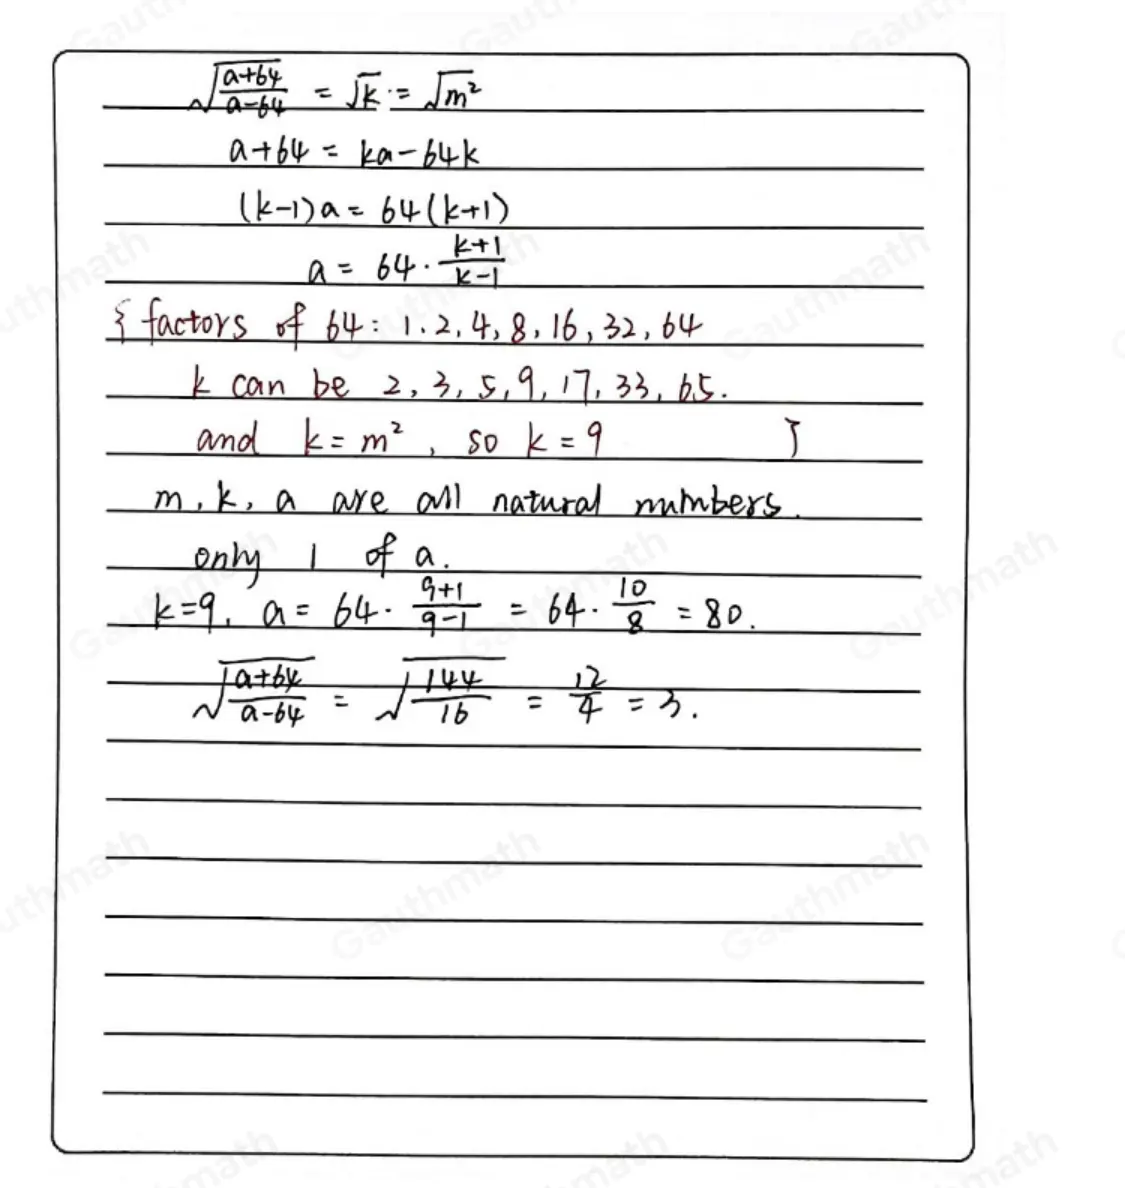 √((a+64)/(a-64)) = √k = √m²
a+64 = ka-64k
(k-1)a = 64(k+1)
a = 64 · (k+1)/(k-1)
{ factors of 64: 1.2,4,8,16,32,64
k can be 2,3,5,9,17,33,65.
and k=m², so k=9 }
m,k,a are all natural numbers.
only 1 of a.
k=9, a = 64 · (9+1)/(9-1) = 64 · 10/8 = 80.
√((a+64)/(a-64)) = √(144/16) = 12/4 = 3.
Gauthmath